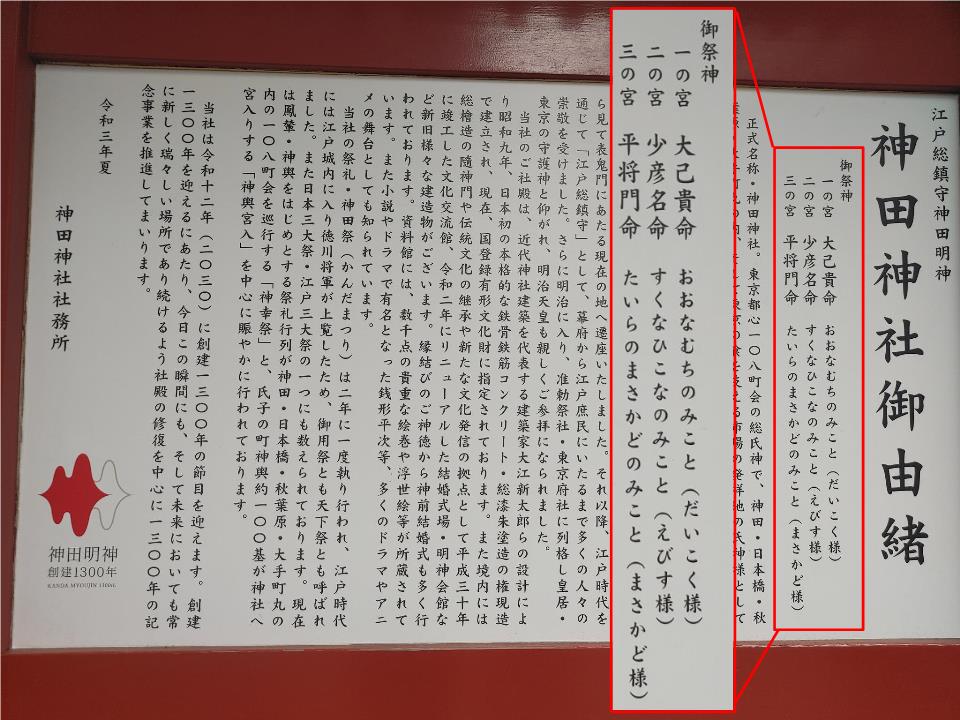 江戸総鎮守神田明神
神田神社御由緒
御祭神
一の宮 大己貴命 おおなむちのみこと（だいこく様）
二の宮 少彦名命 すくなひこなのみこと（えびす様）
三の宮 平将門命 たいらのまさかどのみこと（まさかど様）
御祭神
一の宮 大己貴命 おおなむちのみこと（だいこく様）
二の宮 少彦名命 すくなひこなのみこと（えびす様）
三の宮 平将門命 たいらのまさかどのみこと（まさかど様）
正式名称・神田神社。東京都心一〇八町会の総氏神で、神田・日本橋・秋
ら見て表鬼門にあたる現在の地へ遷座いたしました。それ以降、江戸時代を
通じて「江戸総鎮守」として、幕府から江戸庶民にいたるまで多くの人々の
崇敬を受けました。さらに明治に入り、准勅祭社・東京府社に列格し皇居・
東京の守護神と仰がれ、明治天皇も親しくご参拝になられました。
当社のご社殿は、近代神社建築を代表する建築家大江新太郎らの設計によ
り昭和九年、日本初の本格的な鉄骨鉄筋コンクリート・総漆朱塗造の権現造
で建立され、現在、国登録有形文化財に指定されております。また境内には
総檜造の随神門や伝統文化の継承や新たな文化発信の拠点として平成三十年
に竣工した文化交流館、令和二年にリニューアルした結婚式場・明神会館な
ど新旧様々な建造物がございます。縁結びのご神徳から神前結婚式も多く行
われております。資料館には、数千点の貴重な絵巻や浮世絵等が所蔵されて
います。また小説やドラマで有名となった銭形平次等、多くのドラマやアニ
メの舞台としても知られています。
当社の祭礼・神田祭（かんだまつり）は二年に一度執り行われ、江戸時代
には江戸城内に入り徳川将軍が上覧したため、御用祭とも天下祭とも呼ばれ
ました。また日本三大祭・江戸三大祭の一つにも数えられております。現在
は鳳輦・神輿をはじめとする祭礼行列が神田・日本橋・秋葉原・大手町丸の
内の一〇八町会を巡行する「神幸祭」と、氏子の町神輿約一〇〇基が神社へ
宮入りする「神輿宮入」を中心に賑やかに行われております。
当社は令和十二年（二〇三〇）に創建一三〇〇年の節目を迎えます。創建
一三〇〇年を迎えるにあたり、今日この瞬間にも、そして未来においても常
に新しく瑞々しい場所であり続けるよう社殿の修復を中心に一三〇〇年の記
念事業を推進してまいります。
令和三年夏
神田神社社務所
神田明神
創建1300年
KANDA MYOUJIN 1300th